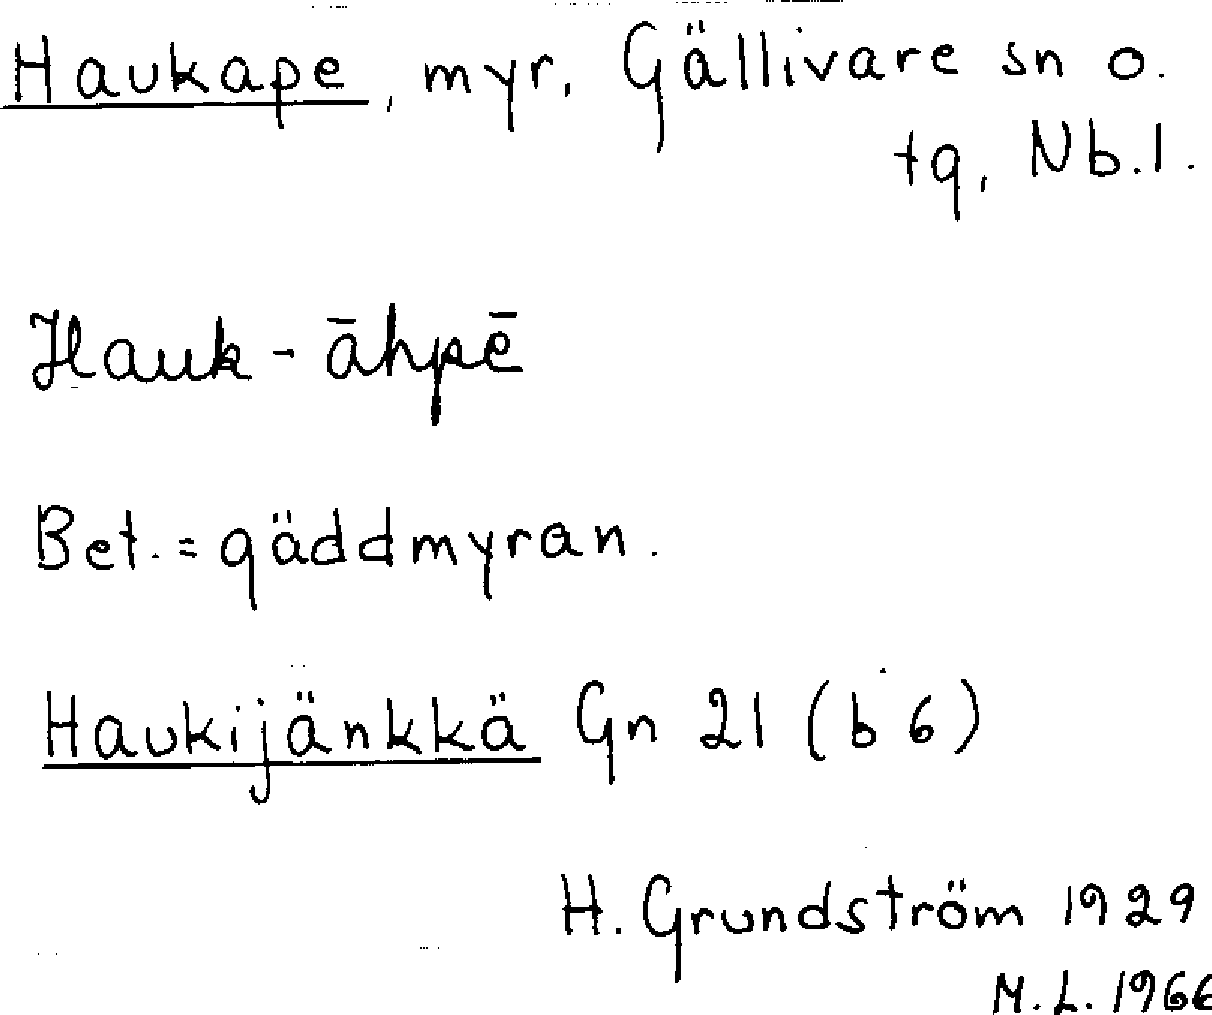 Haukape, myr, Gällivare sn o.
tg, Nb.l.
Hauk-āhpē
Bet. = gäddmyran.
Haukijänkkä Gn 21 (b 6)
H. Grundström 1929
M.L. 1966